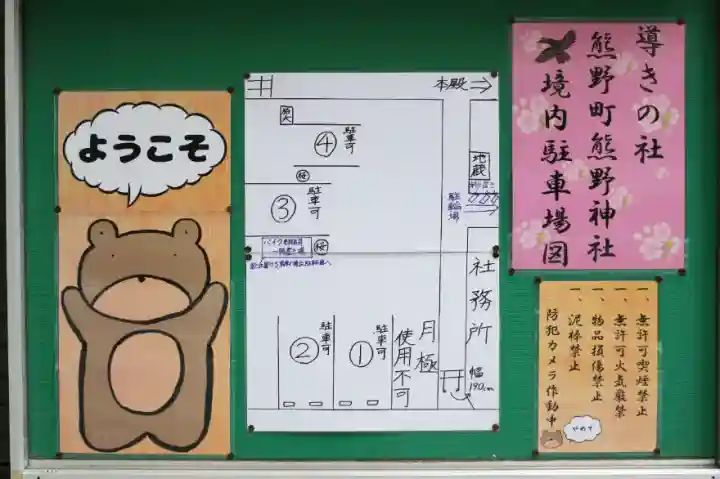 導きの社
熊野町熊野神社
境内駐車場図
ようこそ
本殿
④
駐車可
桜
地蔵
③
駐車可
駐輪場
桜
社務所
②
駐車可
①
駐車可
月極
使用不可
幅
190cm
一、無許可喫煙禁止
一、無許可火気厳禁
一、物品損傷禁止
一、泥棒禁止
防犯カメラ作動中
やめて